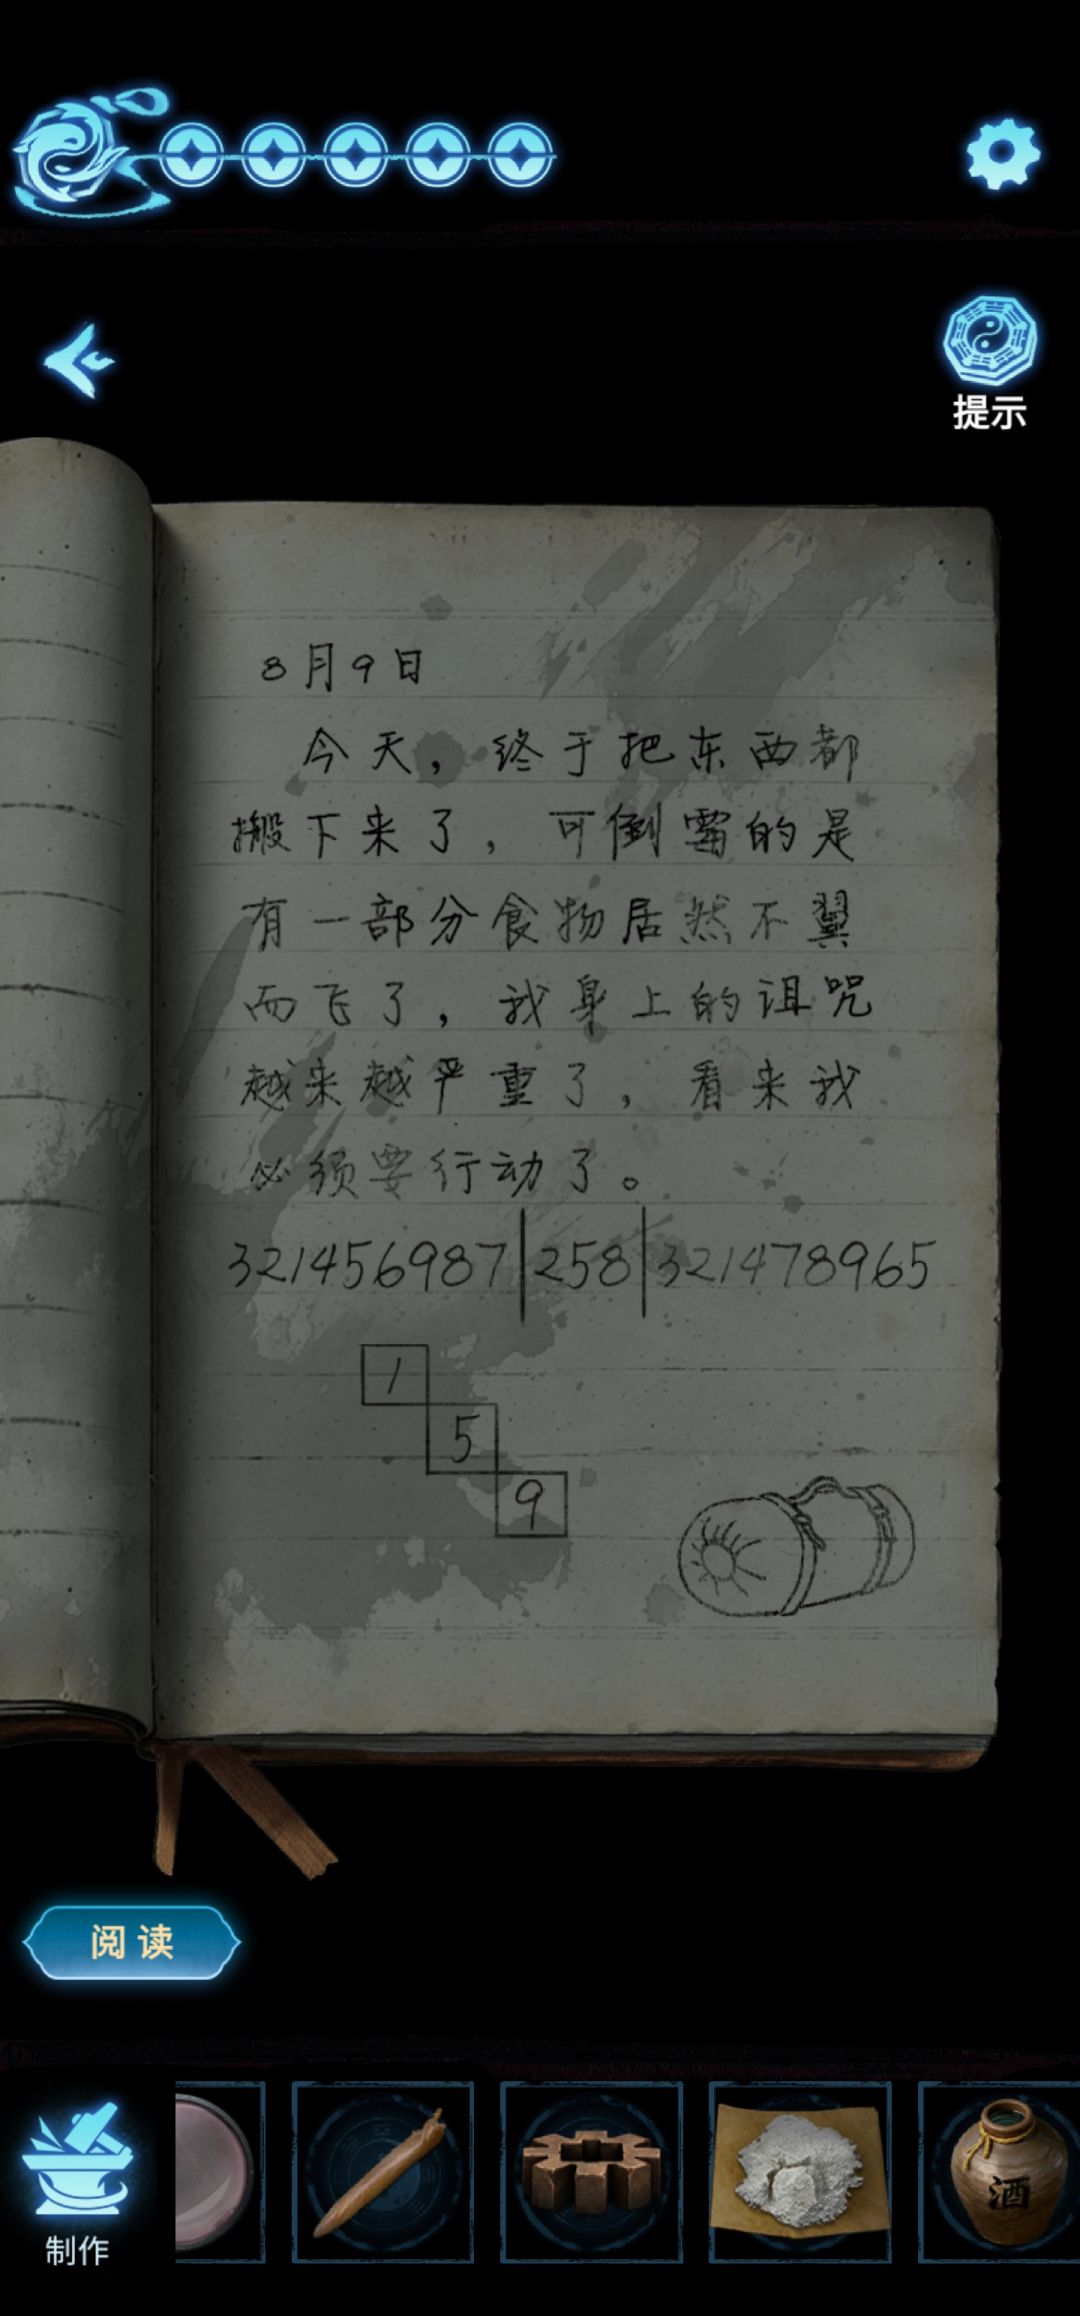 提示
8月9日
今天，终于把东西都
搬下来了，可倒霉的是
有一部分食物居然不翼
而飞了，我身上的诅咒
越来越严重了，看来我
必须要行动了。
321456987|258|321478965
1
5
9
阅读
制作
酒